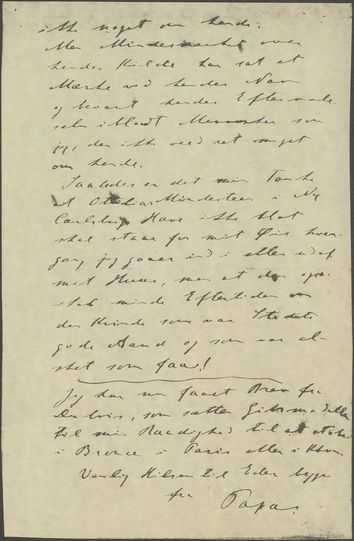 ikke noget om hende.
Men Mindesmærket over
hendes Kilde har sat et
Mærke ved hendes Navn
og bevaret hendes Eftermæle
selv iblandt Mennesker som
jeg, der ikke veed ret noget
om hende.
Saaledes er det min Tanke
at Ottilias Mindesteen i Ny
Carlsberg Have ikke blot
skal staae for mit Øie hver
gang jeg gaaer ind i eller ud af
mit Huus, men at den ogsaa
skal minde Eftertiden om
den Kvinde som var Stedets
gode Aand og som var el-
sket som faa!
Jeg har nu faaet Brev fra
Dubois, som sætter Gibsmodellen
til min Raadighed til at støbe
i Bronce i Paris eller i Kbhvn.
Venlig Hilsen til Eder begge
fra
Papa.